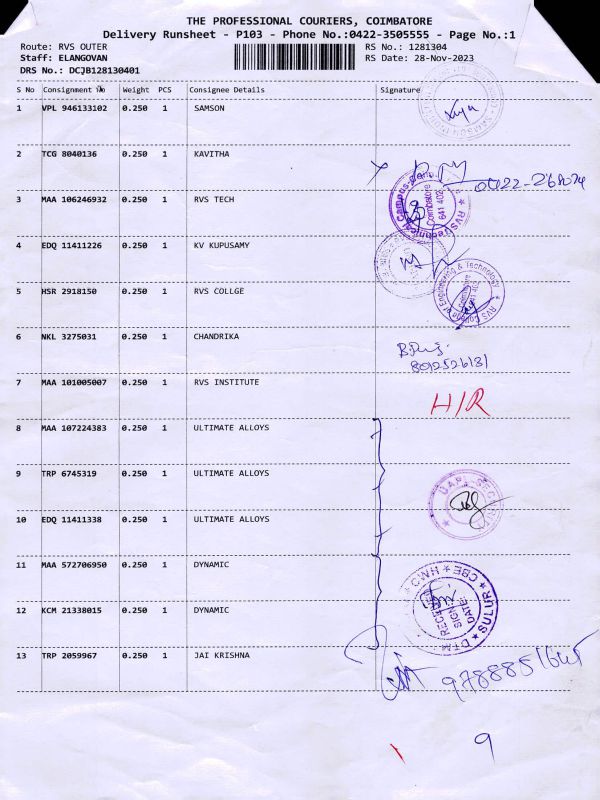 THE PROFESSIONAL COURIERS, COIMBATORE
Delivery Runsheet - P103 - Phone No.:0422-3505555 - Page No.:1
Route: RVS OUTER RS No.: 1281304
Staff: ELANGOVAN RS Date: 28-Nov-2023
DRS No.: DCJB128130401
S No Consignment No Weight PCS Consignee Details Signature
1 VPL 946133102 0.250 1 SAMSON
2 TCG 8040136 0.250 1 KAVITHA
3 MAA 106246932 0.250 1 RVS TECH
4 EDQ 11411226 0.250 1 KV KUPUSAMY
5 HSR 2918150 0.250 1 RVS COLLGE
6 NKL 3275031 0.250 1 CHANDRIKA
8012526131
7 MAA 101005007 0.250 1 RVS INSTITUTE
H/R
8 MAA 107224383 0.250 1 ULTIMATE ALLOYS
9 TRP 6745319 0.250 1 ULTIMATE ALLOYS
10 EDQ 11411338 0.250 1 ULTIMATE ALLOYS
11 MAA 572706950 0.250 1 DYNAMIC
12 KCM 21338015 0.250 1 DYNAMIC
SULUR
CBE
DATE:
SIGN
13 TRP 2059967 0.250 1 JAI KRISHNA
9